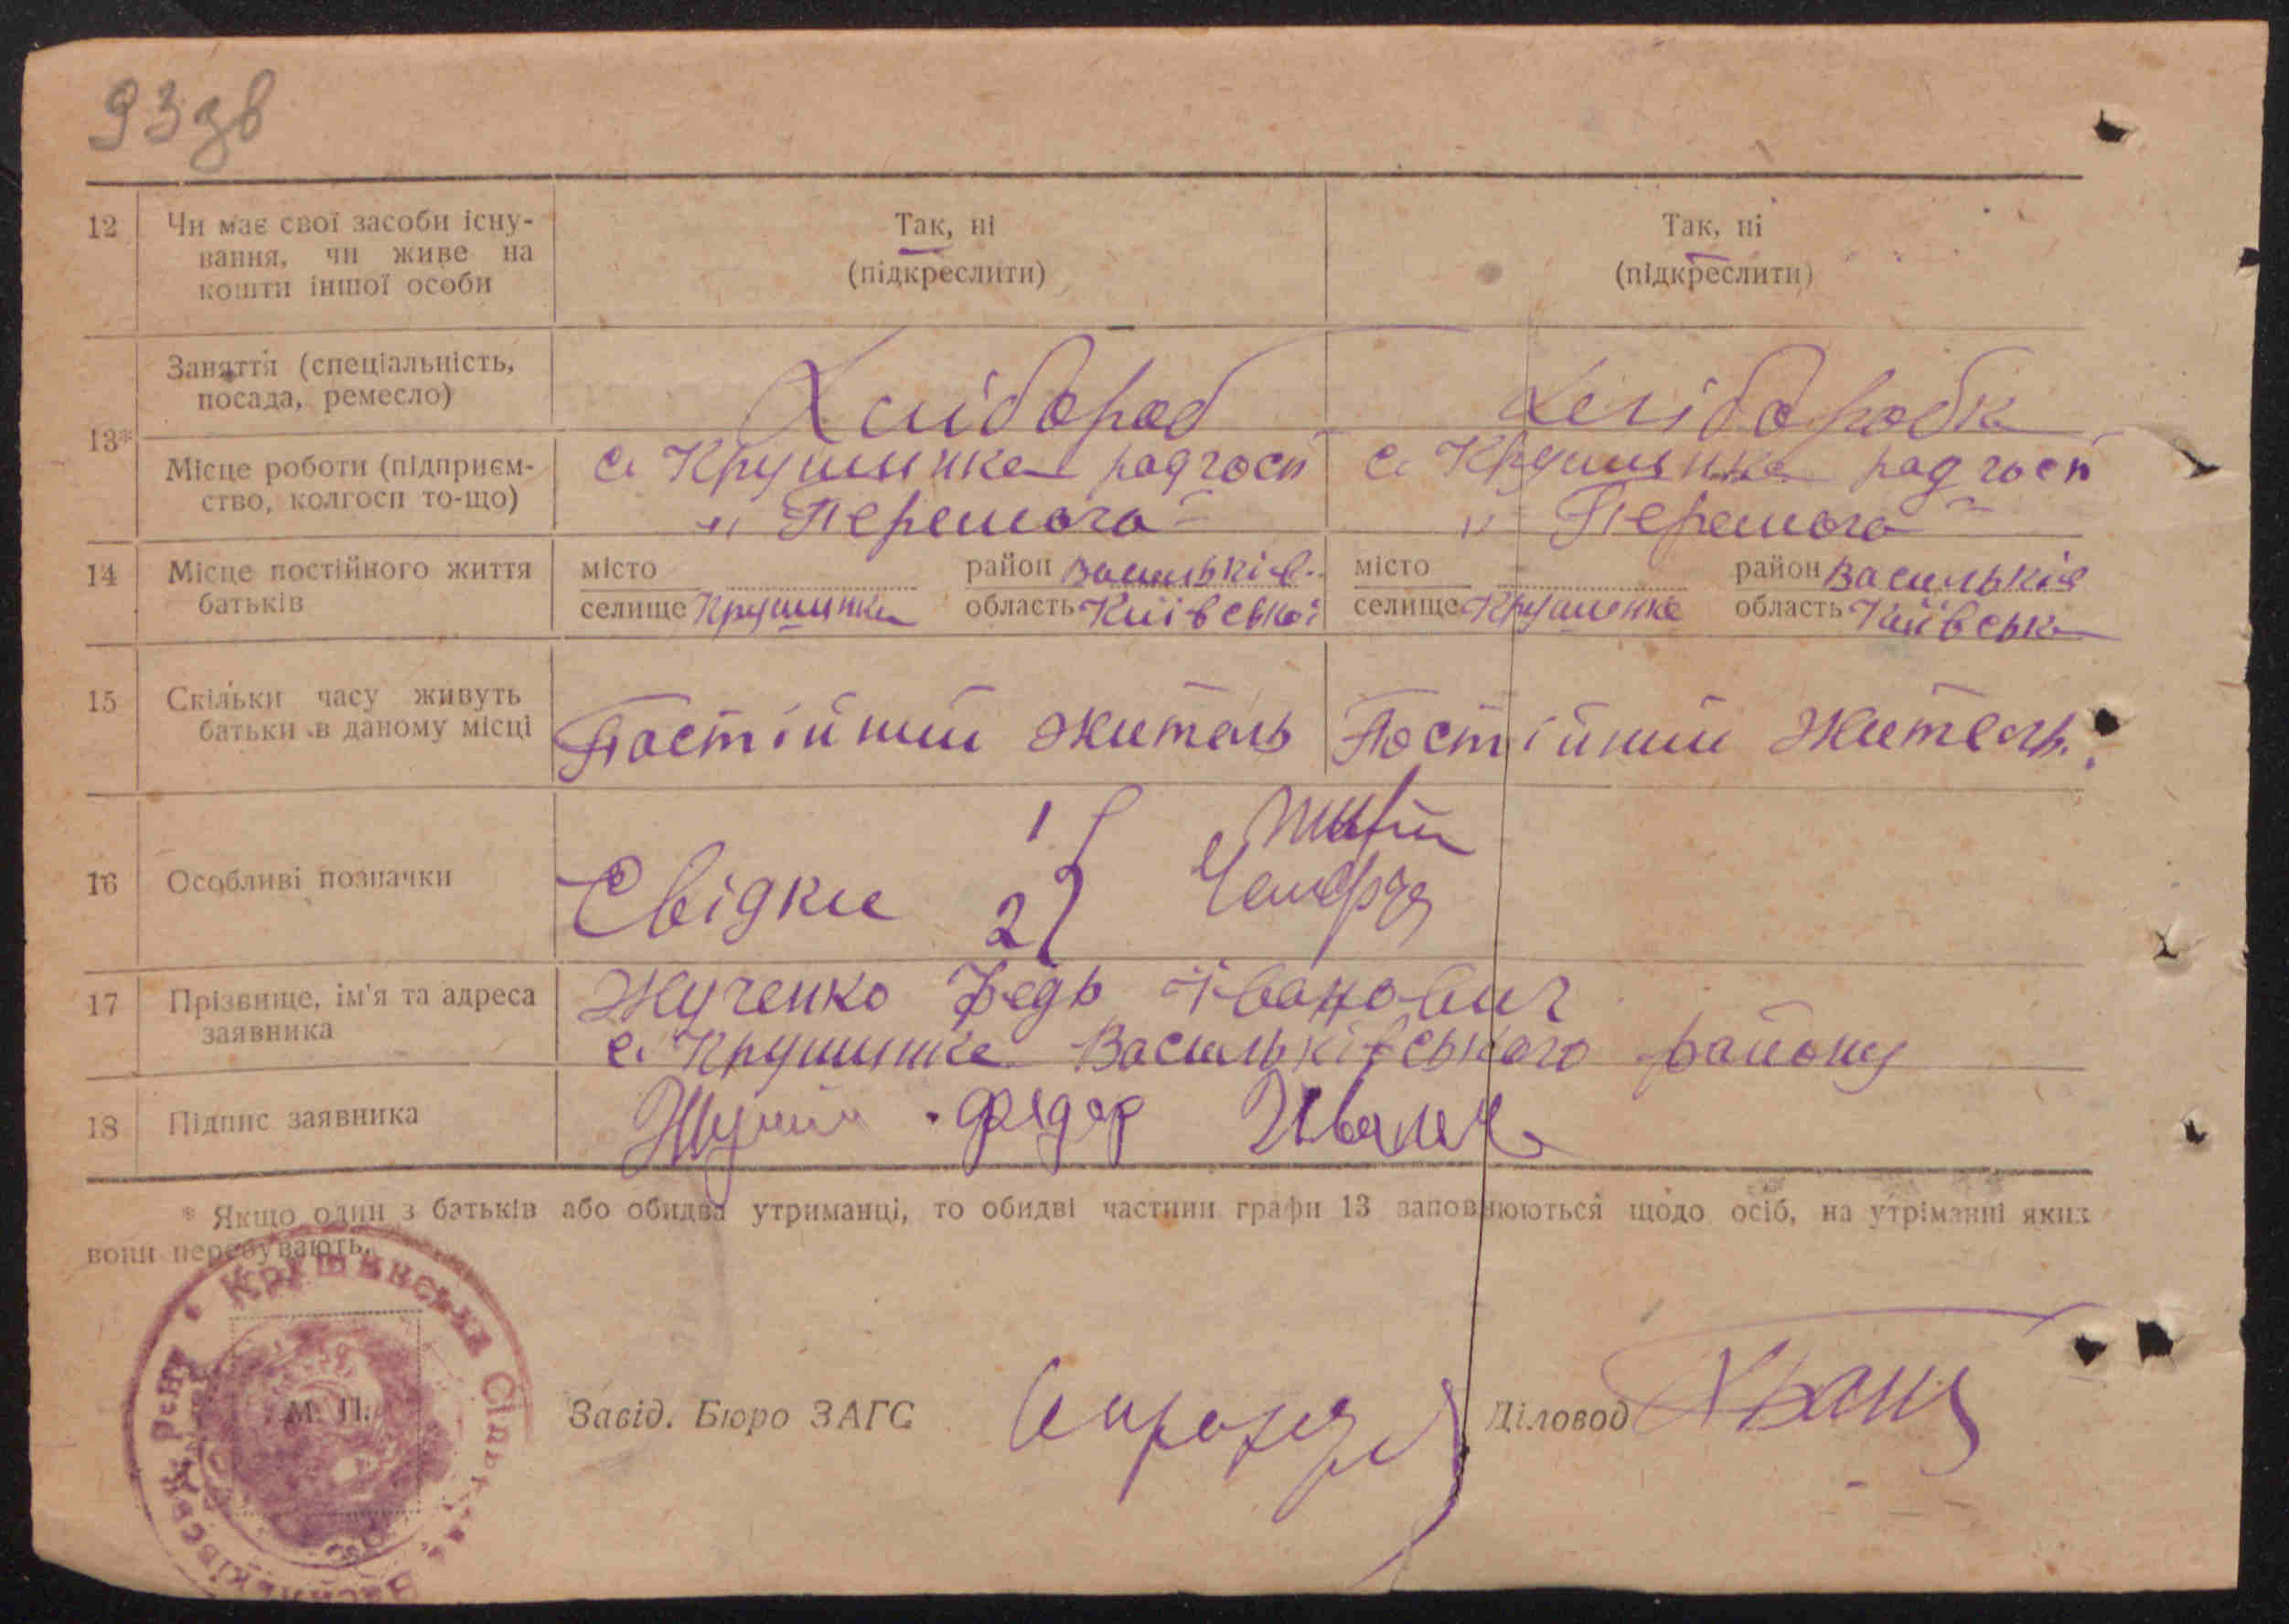 93зв
12 Чи має свої засоби існу- Так, ні Так, ні
вання, чи живе на (підкреслити) (підкреслити)
кошти іншої особи
Заняття (спеціальність, Хлібороб Хліборобка
посада, ремесло)
13*
Місце роботи (підприєм- с. Крушинка радгосп с. Крушинка радгосп
ство, колгосп то-що) „Перемога" „Перемога"
14 Місце постійного життя місто район Васильків. місто район Васильків
батьків селище Крушинка область Київської селище Крушинка область Київська
15 Скільки часу живуть
батьки в даному місці Постійний житель Постійний житель.
1
16 Особливі позначки Свідки 2
17 Прізвище, ім'я та адреса Жученко Федь Іванович
заявника с. Крушинка Васильківського району
18 Підпис заявника Федор
* Якщо один з батьків або обидва утриманці, то обидві частини графи 13 заповнюються щодо осіб, на утріманні яких
вони перебувають.
Крушинська Сільська
М. П.
Завід. Бюро ЗАГС Діловод